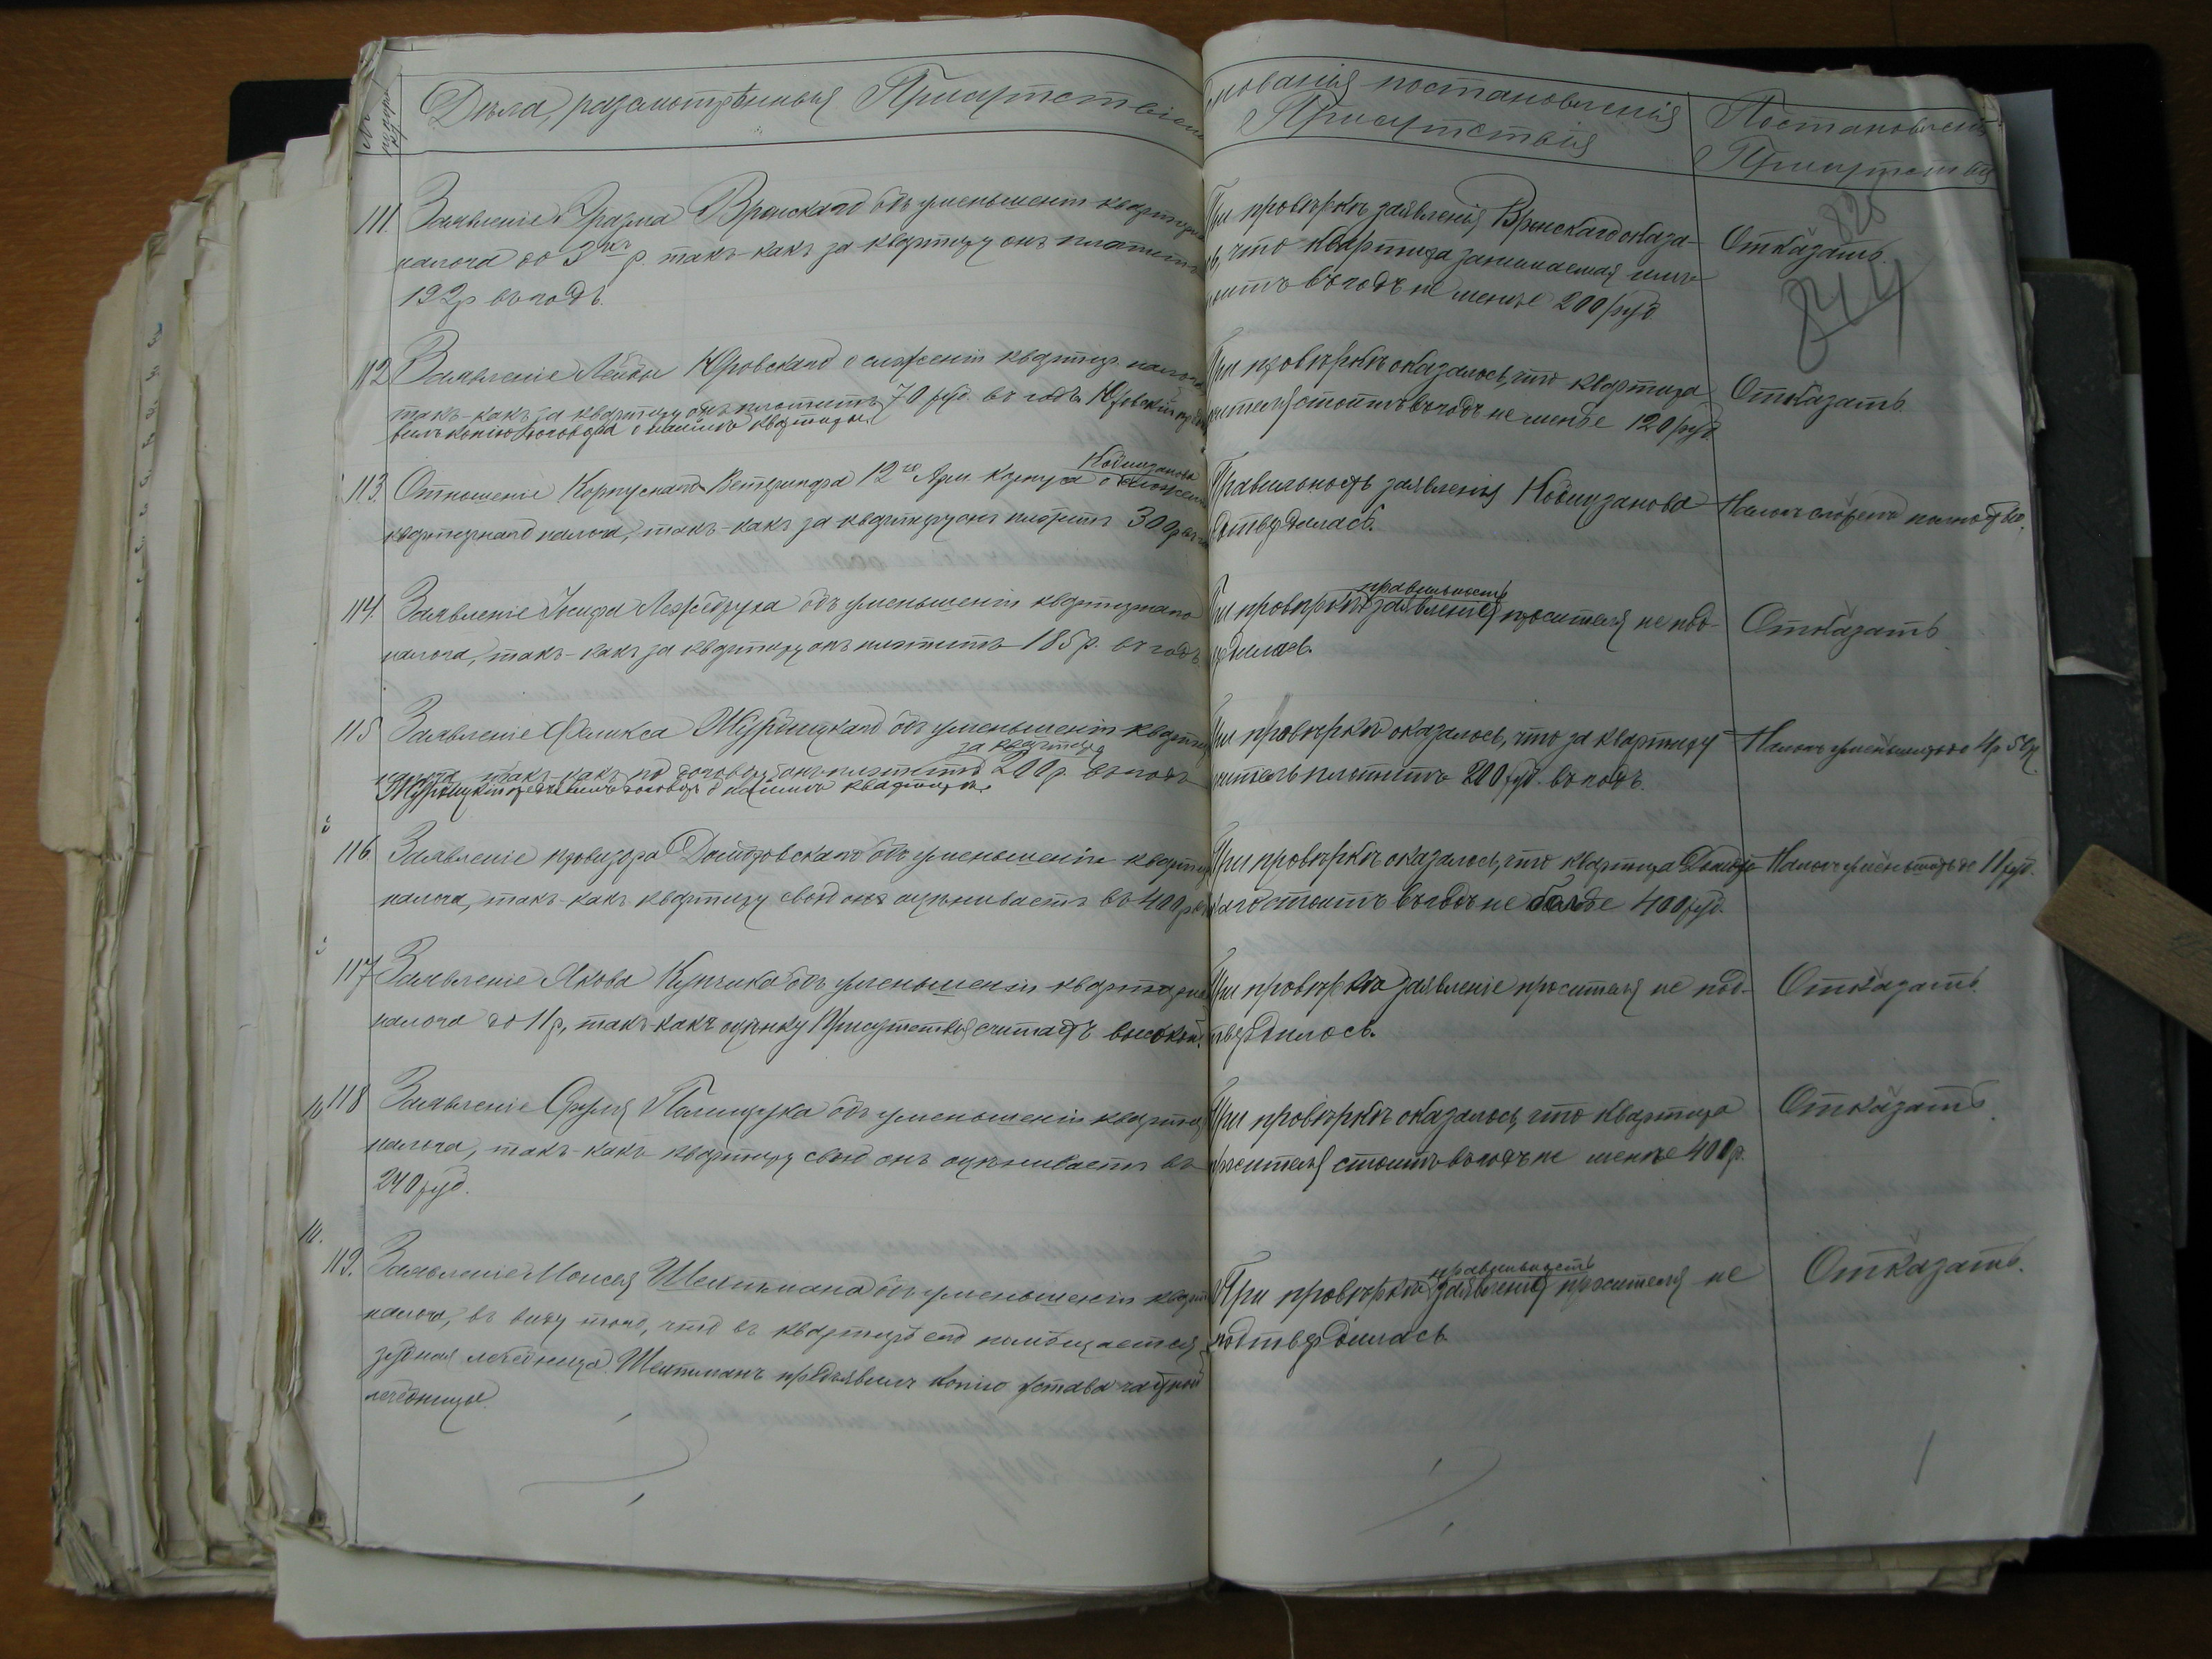 № по поряд
Дѣла, разсмотрѣнныя Присутствіем
нованія постановленія
Присутствія
Постановленія
Присутствія
826
844
111. Заявленіе Вронскаго объ уменьшеніи квартирн
налога до 3 р. такъ-какъ за квартиру онъ платитъ
192р въ годъ.
При провѣркѣ заявленія Вронскаго оказа-
ь, что квартира занимаемая имъ
оитъ въ годъ не менѣе 200 руб
Отказать.
112 Заявленіе Лейбы Юровскаго о сложеніи квартир. налога
такъ-какъ за квартиру онъ платитъ 70 руб. въ годъ. Юровскій
вилъ копію договора о наймѣ квартиры
При провѣркѣ оказалось, что квартира
сителя стоитъ въ годъ не менѣе 120 руб
Отказать.
113. Отношеніе Корпуснаго Ветеринара 12го Арм. Корпуса о сложеніи
квартирнаго налога, такъ-какъ за квартиру онъ платитъ 300р въ
Правильность заявленія
дтвердилась.
Налогъ сложить полностью.
114. Заявленіе Іосифа объ уменьшеніи квартирнаго
налога, такъ-какъ за квартиру онъ платитъ 185 р. въ годъ
При провѣркѣ правильность заявленія просителя не подт-
рдилась.
Отказать
115 Заявленіе Феликса объ уменьшеніи квартир
налога такъ-какъ по договору онъ платитъ за квартиру 200р. въ годъ
предъявилъ договоръ о наймѣ квартиры.
При провѣркѣ оказалось, что за квартиру
ситель платитъ 200 руб. въ годъ.
Налогъ уменьшить до 4р 50к
116. Заявленіе провизора объ уменьшеніи квартир
налога, такъ-какъ квартиру свою онъ оцѣниваетъ въ 400 р въ
При провѣркѣ оказалось, что квартира
каго стоитъ въ годъ не болѣе 400 руб.
Налогъ уменьшить до 11 руб.
117 Заявленіе Якова Купчика объ уменьшеніи квартирна
налога до 11р, такъ-какъ оцѣнку Присутствія считаетъ высокой.
При провѣркѣ заявленіе просителя не под-
твердилось.
Отказать.
118 Заявленіе Сруля Полищука объ уменьшеніи квартир
налога, такъ-какъ квартиру свою онъ оцѣниваетъ въ
240 руб.
При провѣркѣ оказалось, что квартира
просителя стоитъ въ годъ не менѣе 400 р.
Отказать
119. Заявленіе Моисея объ уменьшеніи кварт
налога, въ виду того, что въ квартирѣ его помѣщается
зубная лечебница. предъявилъ копію устава зубной
лечебницы.
При провѣркѣ правильность заявленія просителя не
подтвердилась.
Отказать.